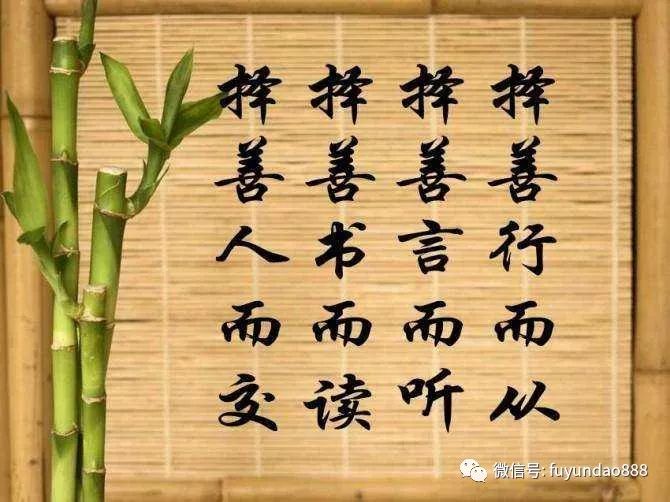 择善人而交
择善书而读
择善言而听
择善行而从
微信号: fuyundao888